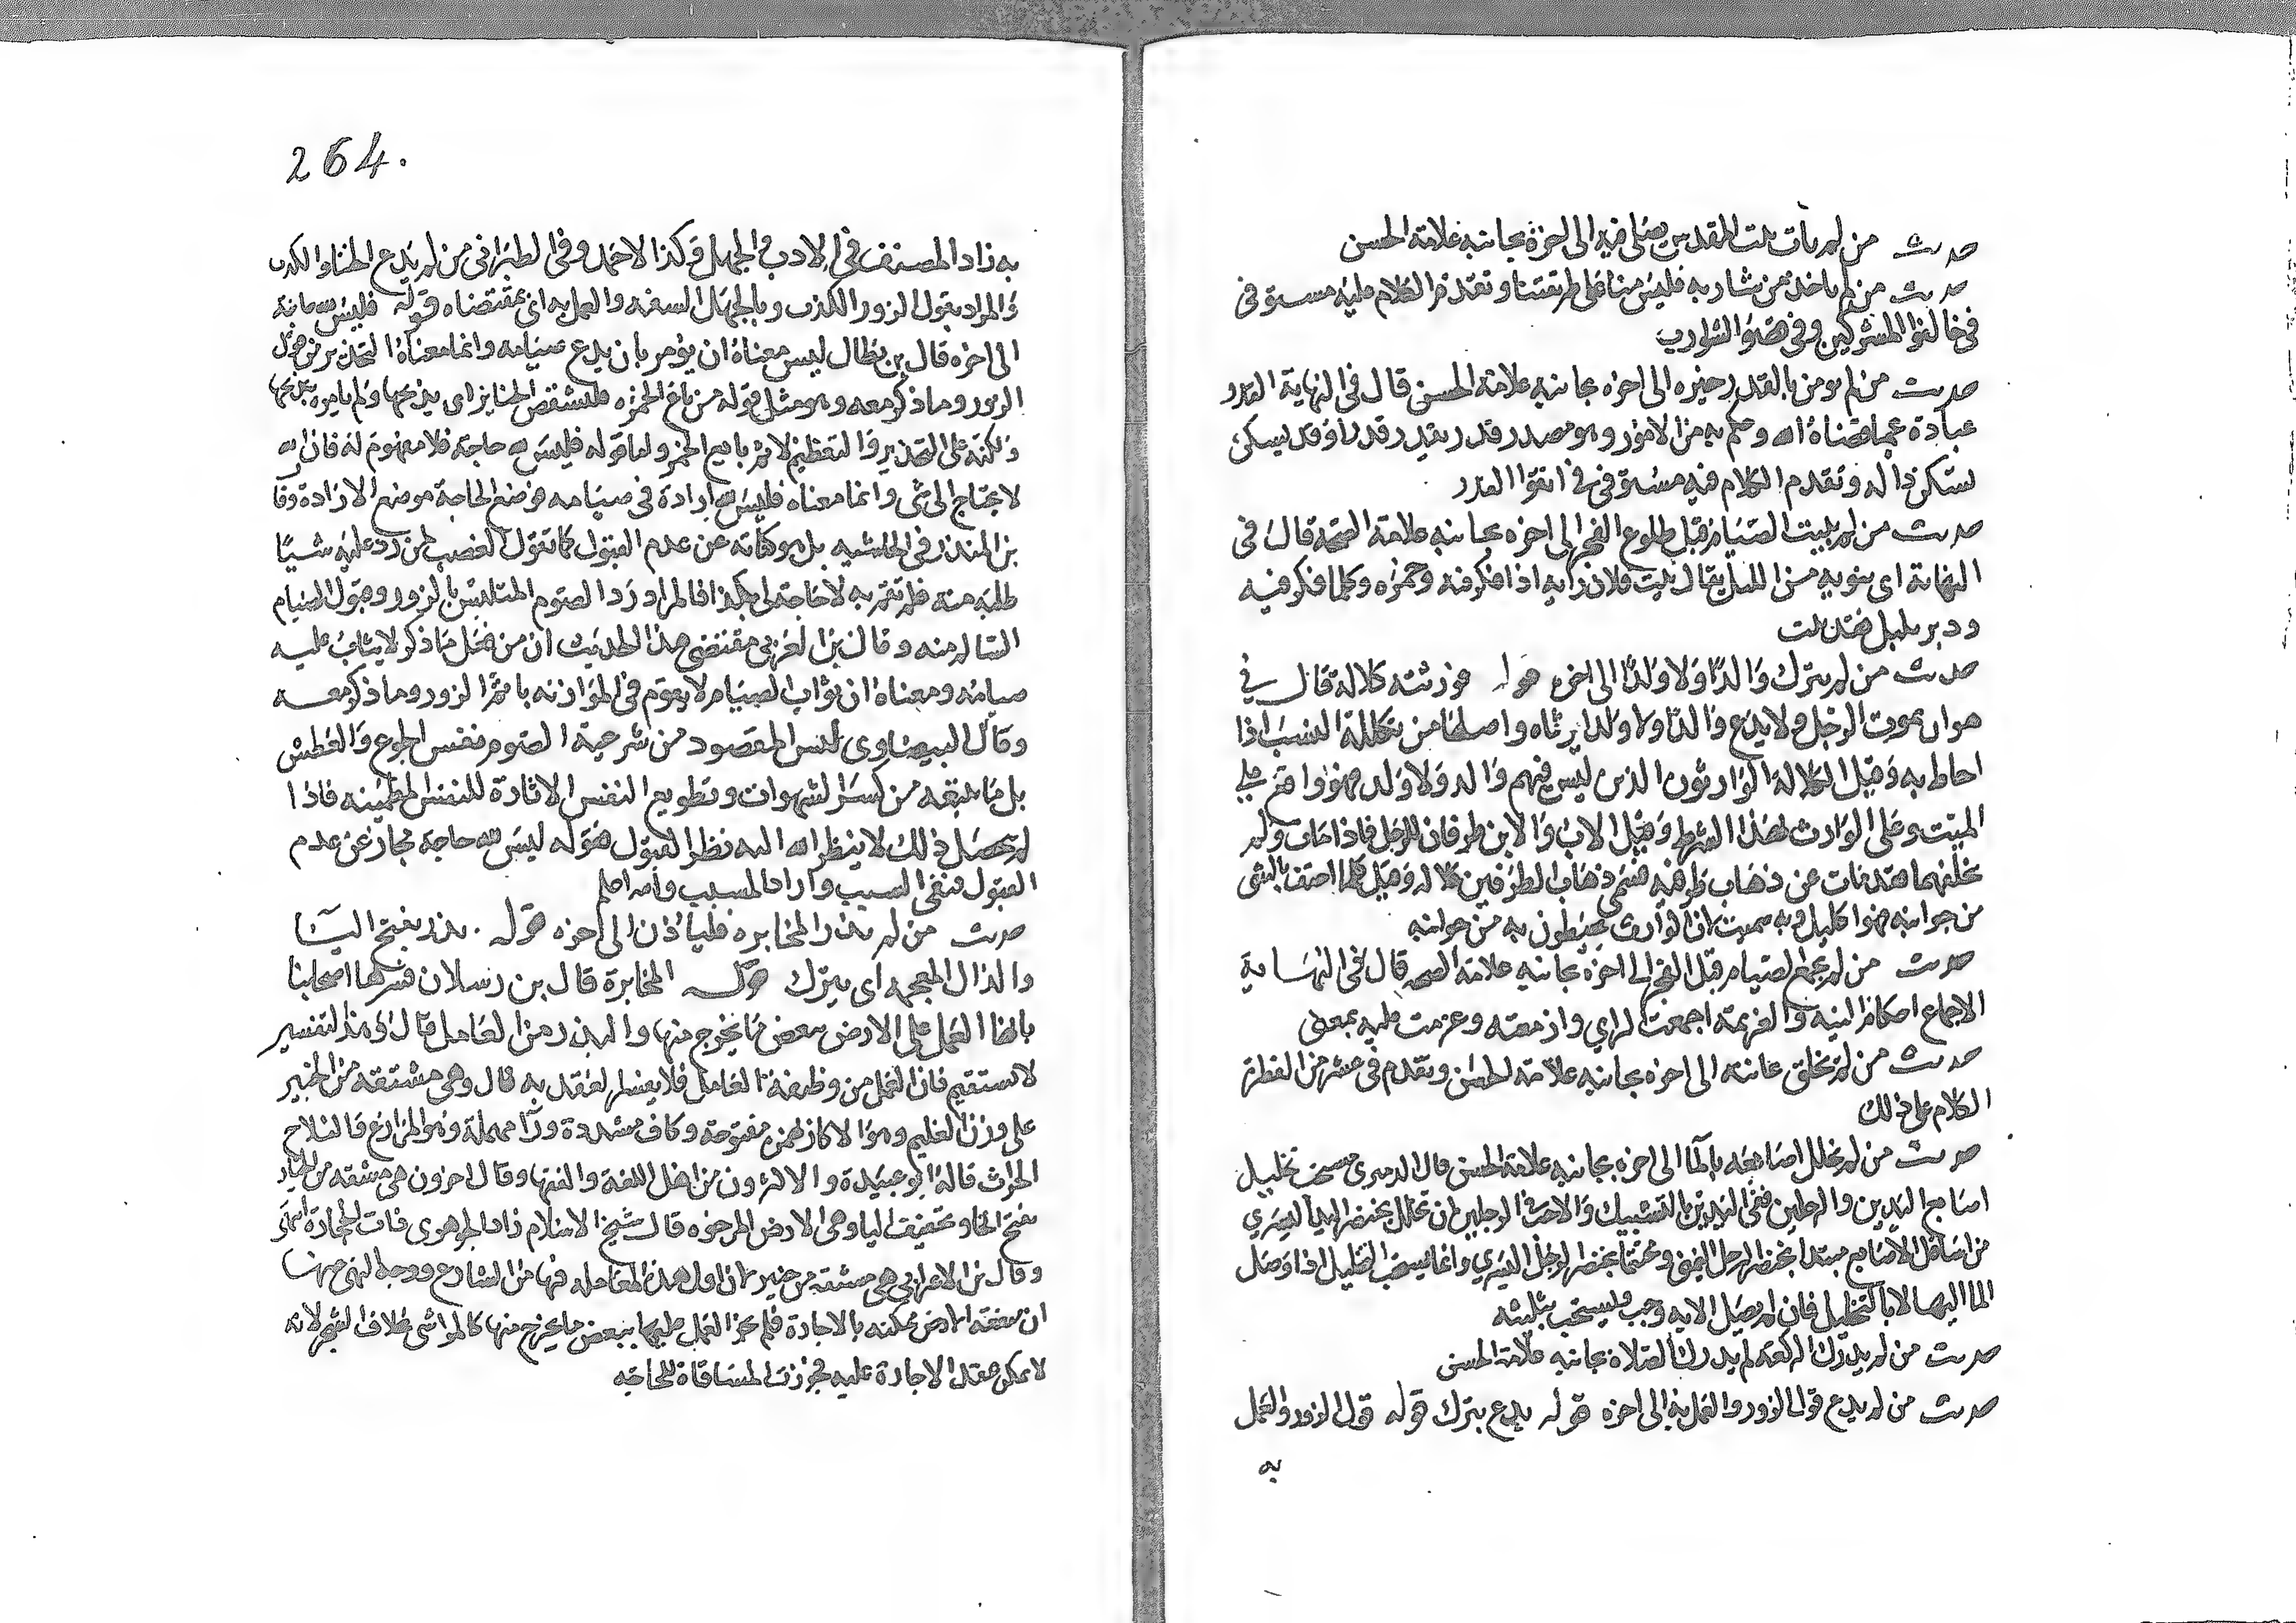 حديث من لم يأت بيت المقدس يصلي فيه الى اخره بجانبه علامة الحسن
حديث من لم ياخذ من شاربه فليس منا على طريقتنا وتقدم الكلام عليه مستوفى في
في خالفوا المشركين وفي قصوا الشوارب
حديث من لم يومن بالقدر خيره الى اخره بجانبه علامة الحسن قال في النهاية القدر
عبارة عما قضاه الله وحكم به من الامور وهو مصدر قدر يقدر قدرا وقد يسكن
تسكن داله وتقدم الكلام فيه مستوفى في اتقوا القدر
حديث من لم يبيت الصيام قبل طلوع الفجر الى اخره بجانبه علامة الصحة قال في
النهاية اي ينويه من الليل يقال بيت فلان رايه اذا فكر فيه وخمره وكلما فكر فيه
ودبر بليل فقد بيت
حديث من لم يترك والدا ولا ولدا الى اخره قوله فورثته كلالة قال في
هو ان يموت الرجل ولا يدع والدا ولا ولدا يرثاه واصلها من تكلله النسب اذا
احاط به وقيل الكلالة الوارثون الذين ليس فيهم والد ولا ولد فهو واقع على
الميت وعلى الوارث بهذا الشرط وقيل الاب والابن طرفان للرجل فاذا مات ولم
يخلفهما فقد مات عن ذهاب طرفيه فسمي ذهاب الطرفين كلاله وقيل كلما احتف بالشي
من جوانبه فهو اكليل وبه سميت لان الوارث يحيطون به من جوانبه
حديث من لم يجمع الصيام قبل الفجر الى اخره بجانبه علامة الصحه قال في النهاية
الاجماع احكام النية والعزيمة اجمعت الراي وازمعته وعزمت عليه بمعنى
حديث من لم يحلق عانته الى اخره بجانبه علامة الحسن وتقدم في عشر من الفطرة
الكلام على ذلك
حديث من لم يخلل اصابعه بالماء الى اخره بجانبه علامة الحسن قال الدميري يستحب تخليل
اصابع اليدين والرجلين ففي اليدين بالتشبيك والاحب في الرجلين ان يخلل بخنصر اليد اليسرى
من اسافل الاصابع مبتدئا بخنصر الرجل اليمنى ومختتما بخنصر الرجل اليسرى وانما يستحب التخليل اذا وصل
الما اليها لا بالتخليل فان لم يصل الا به وجب ويستحب تثليثه
حديث من لم يدرك الركعة لم يدرك الصلاة بجانبه علامة الحسن
حديث من لم يدع قول الزور والعمل به الى اخره قوله يدع يترك قوله قول الزور والعمل
به
264.
به زاد المصنف في الادب والجهل وكذا لاحمد وفي الطبراني من لم يدع الخنا والكذب
والمراد بقول الزور الكذب وبالجهل السفه والعمل به اي بمقتضاه قوله فليس لله حاجة
الى اخره قال بن بطال ليس معناه ان يؤمر بان يدع صيامه وانما معناه التحذير من قول
الزور وما ذكر معه وهو مثل قوله من باع الخمر فليشقص الخنازير اي يذبحها ولم يامره بذبحها
ولكنه على التحذير والتعظيم لاثم بايع الخمر واما قوله فليس لله حاجة فلا مفهوم له فان الله
لا يحتاج الى شي وانما معناه فليس لله ارادة في صيامه فوضع الحاجة موضع الارادة وقال
بن المنذر في الحاشيه بل هو كناية عن عدم القبول كما تقول الغضب لمن رد عليه شيئا
طلبه منه فلم تقم به لا حاجة لي بكذا فالمراد رد الصوم المتلبس بالزور وقبول الصيام
السالم منه وقال بن العربي مقتضى هذا الحديث ان من فعل ما ذكر لا يثاب على
صيامه ومعناه ان ثواب الصيام لا يقوم في الموازنه باثم الزور وما ذكر معه
وقال البيضاوي ليس المقصود من شرعية الصوم نفس الجوع والعطش
بل ما يتبعه من كسر الشهوات وتطويع النفس الامارة للنفس المطمئنه فاذا
لم يحصل ذلك لا ينظر الله اليه نظر القبول فقوله ليس لله حاجة مجاز عن عدم
القبول فنفى السبب واراد المسبب والله اعلم
حديث من لم يذر المخابره فلياذن الى اخره قوله يذر بفتح اليا
والذال المعجمه اي يترك قوله المخابرة قال بن رسلان فسرها اصحابنا
بانها العمل على الارض ببعض ما يخرج منها والبذر من العامل قال وهذا التفسير
لا يستقيم فان العمل من وظيفة العامل فلا يفسر العقد به قال وهي مشتقه من الخبير
على وزن العليم وهو الاكار بهمزه مفتوحة وكاف مشددة ورا مهملة وهو المزارع فالفلاح
الحراث قاله ابو عبيدة والاكثرون من اهل اللغة والفقها وقال اخرون هي مشتقه من الخبار
بفتح الخا وتخفيف البا وهي الارض الرخوه قال شيخ الاسلام زاد الجوهري ذات الحجارة انتهى
وقال بن الاعرابي هي مشتقه من خيبر لان اول هذه المعامله فيها من الشارع ووجه النهي عنها
ان منفعة الارض ممكنه بالاجارة فلم يجز العمل عليها ببعض ما يخرج منها كالمواشي بخلاف الشجر لانه
لا يمكن عقد الاجارة عليه فجوزت المساقاة للحاجه